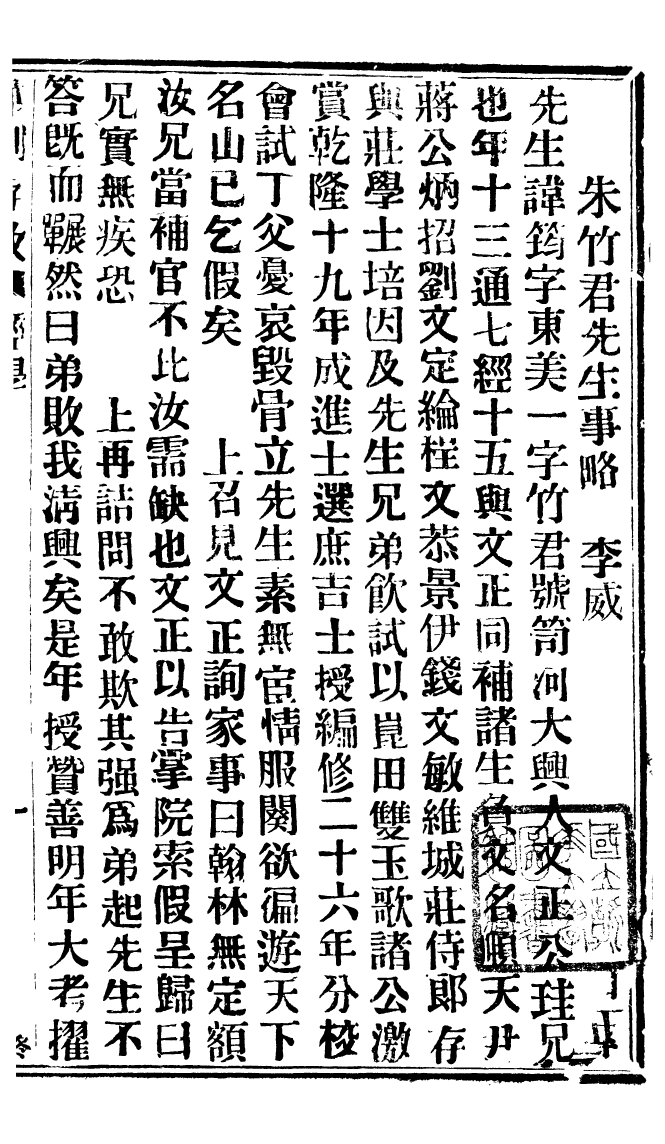 朱竹君先生事略　李威
先生諱筠字東美一字竹君號笥河大興人文正公珪兄
也年十三通七經十五與文正同補諸生負文名順天尹
蔣公炳招劉文定綸程文恭景伊錢文敏維城莊侍郎存
與莊學士培因及先生兄弟飲試以崑田雙玉歌諸公激
賞乾隆十九年成進士選庶吉士授編修二十六年分校
會試丁父憂哀毀骨立先生素無宦情服闋欲徧遊天下
名山已乞假矣　　上召見文正詢家事曰翰林無定額
汝兄當補官不比汝需缺也文正以告掌院索假呈歸曰
兄實無疾恐　　上再詰問不敢欺其强爲弟起先生不
答旣而囅然曰弟敗我淸興矣是年授贊善明年大考擢